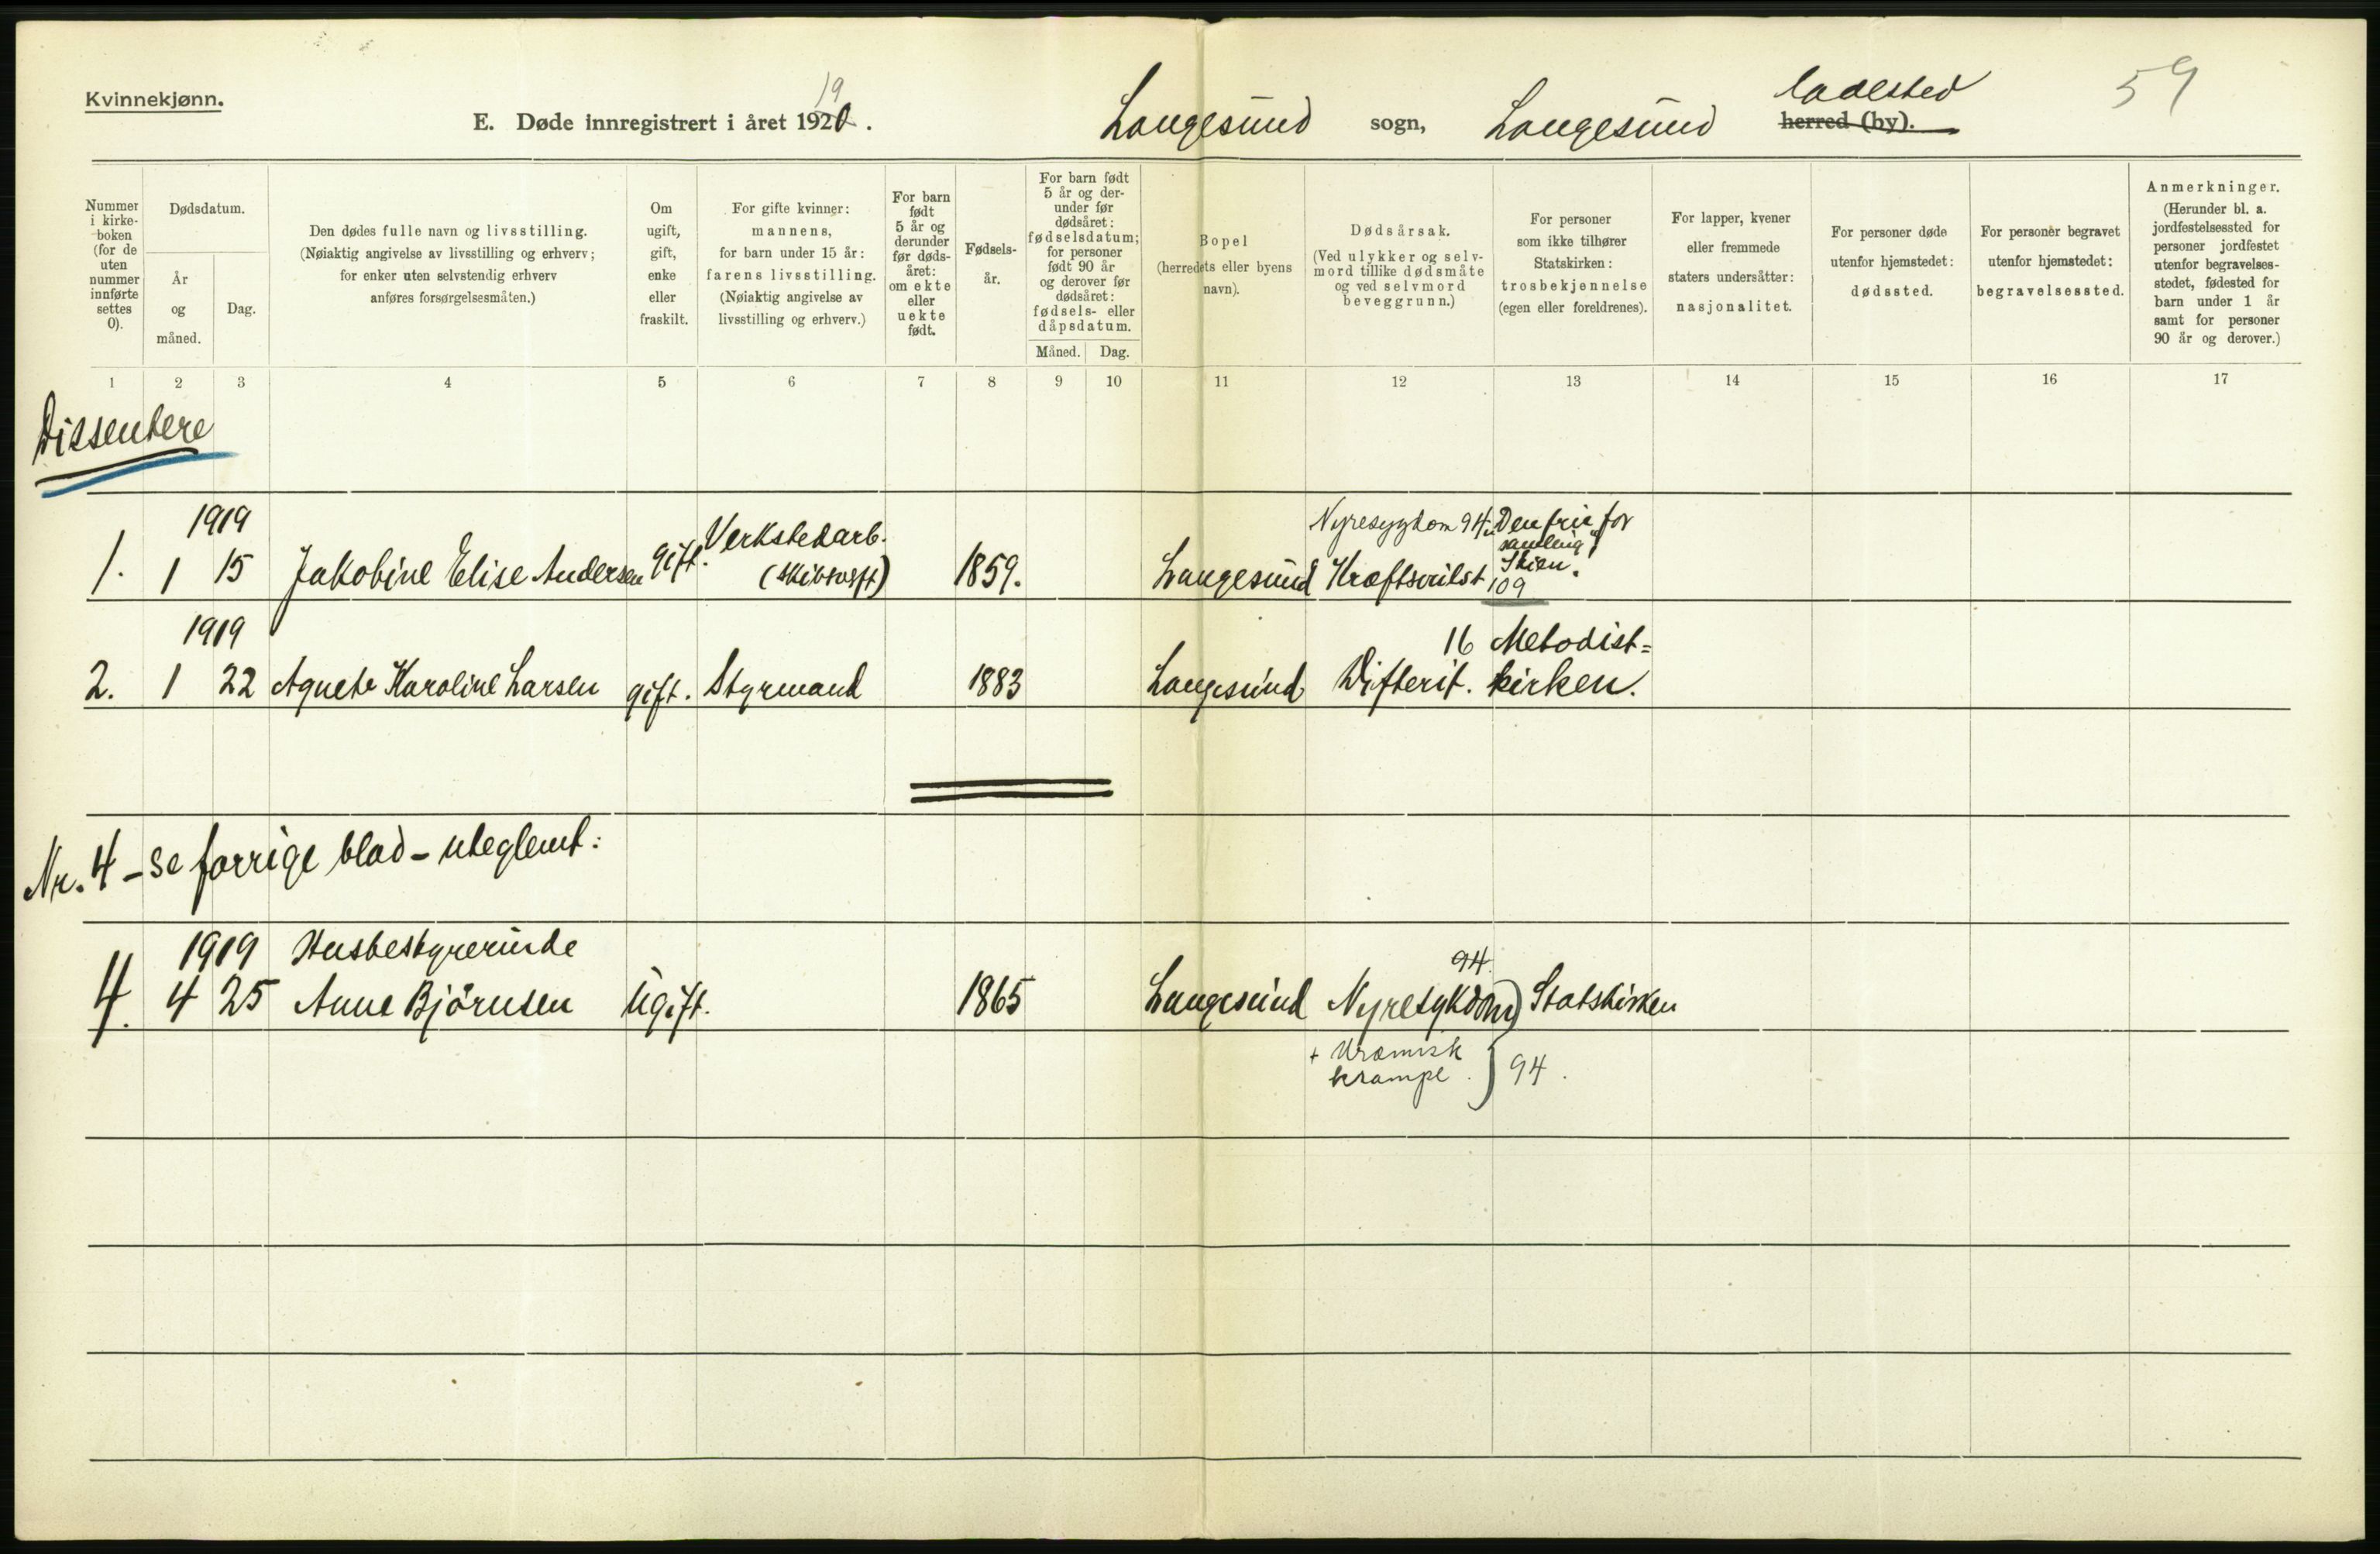 Kvinnekjønn.
E. Døde innregistrert i året 1920.
19
Langesund sogn, Langesund ladested
herred (by).
59
Nummer
i kirke-
boken
(for de
uten
nummer
innførte
settes
0).
Dødsdatum.
År
og
måned.
Dag.
Den dødes fulle navn og livsstilling.
(Nøiaktig angivelse av livsstilling og erhverv;
for enker uten selvstendig erhverv
anføres forsørgelsesmåten.)
Om
ugift,
gift,
enke
eller
fraskilt.
For gifte kvinner:
mannens,
for barn under 15 år:
farens livsstilling.
(Nøiaktig angivelse av
livsstilling og erhverv.)
For barn
født
5 år og
derunder
før døds-
året:
om ekte
eller
uekte
født.
Fødsels-
år.
For barn født
5 år og der-
under før
dødsåret:
fødselsdatum;
for personer
født 90 år
og derover før
dødsåret:
fødsels- eller
dåpsdatum.
Måned. Dag.
Bopel
(herredets eller byens
navn).
Dødsårsak.
(Ved ulykker og selv-
mord tillike dødsmåte
og ved selvmord
beveggrunn.)
For personer
som ikke tilhører
Statskirken:
trosbekjennelse
(egen eller foreldrenes).
For lapper, kvener
eller fremmede
staters undersåtter:
nasjonalitet.
For personer døde
utenfor hjemstedet:
dødssted.
For personer begravet
utenfor hjemstedet:
begravelsessted.
Anmerkninger.
(Herunder bl. a.
jordfestelsessted for
personer jordfestet
utenfor begravelses-
stedet, fødested for
barn under 1 år
samt for personer
90 år og derover.)
1 2 3 4 5 6 7 8 9 10 11 12 13 14 15 16 17
Dissentere
1919 Verkstedarb. Nyresygdom 94 Den frie for
samling
1. 1 15 Jakobine Elise Andersen gift. (skibsvft) 1859. Langesund Kræftsvulst Skien.
109
1919 16 Metodist=
2. 1 22 Agnete Karoline Larsen gift. Styrmand 1883 Langesund Difterit. kirken.
Nr. 4 - se forrige blad - uteglemt:
1919 Husbestyrerinde 94.
4. 4 25 Anne Björnsen Ugift. 1865 Langesund Nyresykdom) Statskirken
+ Uræmisk
krampe. } 94.